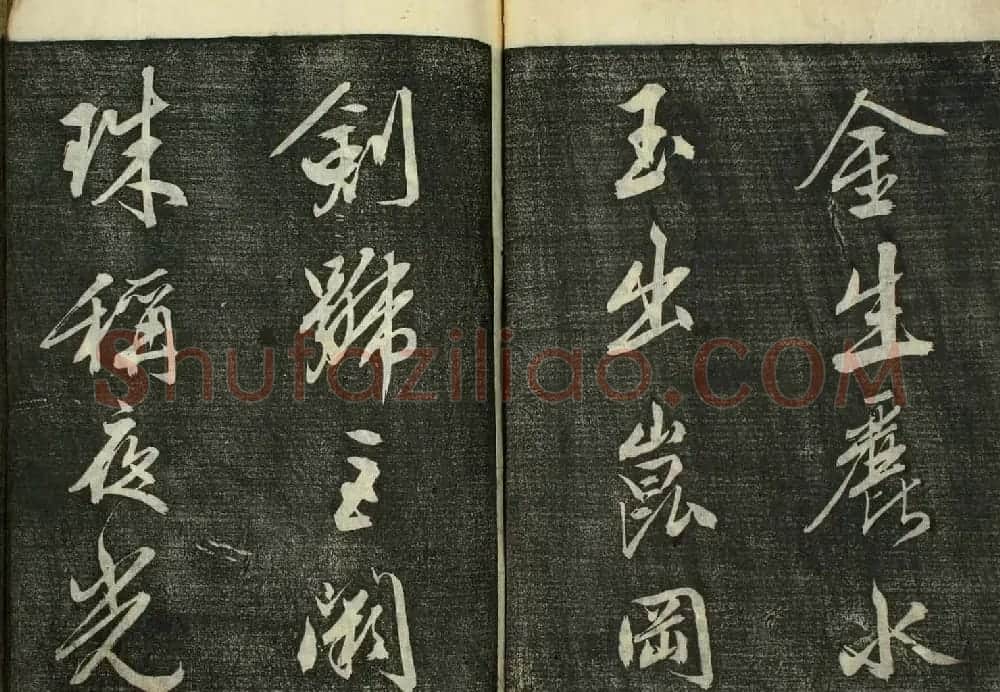 金生麗水
玉出崑岡
劍號巨闕
珠稱夜光
Shufaziliao.COM